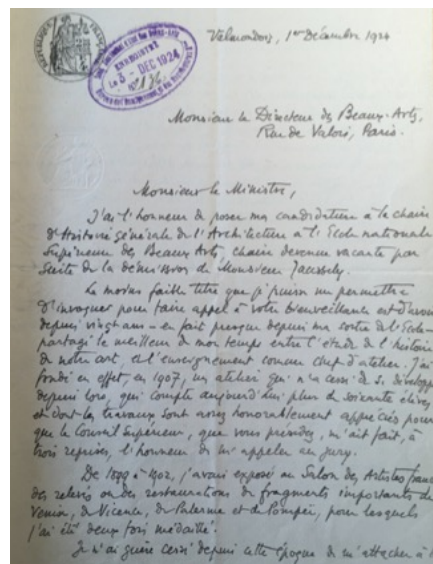 RÉPUBLIQUE FRANÇAISE
ENREGISTRÉ
Le 3 - DEC 1924
N° 186
Valmondois, 1er Décembre 1924
Monsieur le Directeur des Beaux-Arts,
Rue de Valois, Paris.
Monsieur le Ministre,
J'ai l'honneur de poser ma candidature à la chaire
d'Histoire générale de l'Architecture à l'Ecole nationale
Supérieure des Beaux Arts, chaire devenue vacante par
suite de la démission de Monsieur Jaussely.
Le moins faible titre que j'puisse me permettre
d'invoquer pour faire appel à votre bienveillance est d'avoir
depuis vingt ans - en fait presque depuis ma sortie de l'Ecole -
partagé le meilleur de mon temps entre l'étude de l'histoire
de notre art, et l'enseignement comme chef d'atelier. J'ai
fondé en effet, en 1907, un atelier qui n'a cessé de se développer
depuis lors, qui compte aujourd'hui plus de soixante élèves
et dont les travaux sont assez honorablement appréciés pour
que le Conseil Supérieur, que vous présidez, m'ait fait, à
trois reprises, l'honneur de m'appeler au jury.
De 1899 à 1902, j'avais exposé au Salon des Artistes
des relevés ou des restaurations de fragments importants de
Venise, de Vicence, de Palerme et de Pompéi, pour lesquels
j'ai été deux fois médaillé.
Je n'ai guère cessé depuis cette époque de m'attacher à